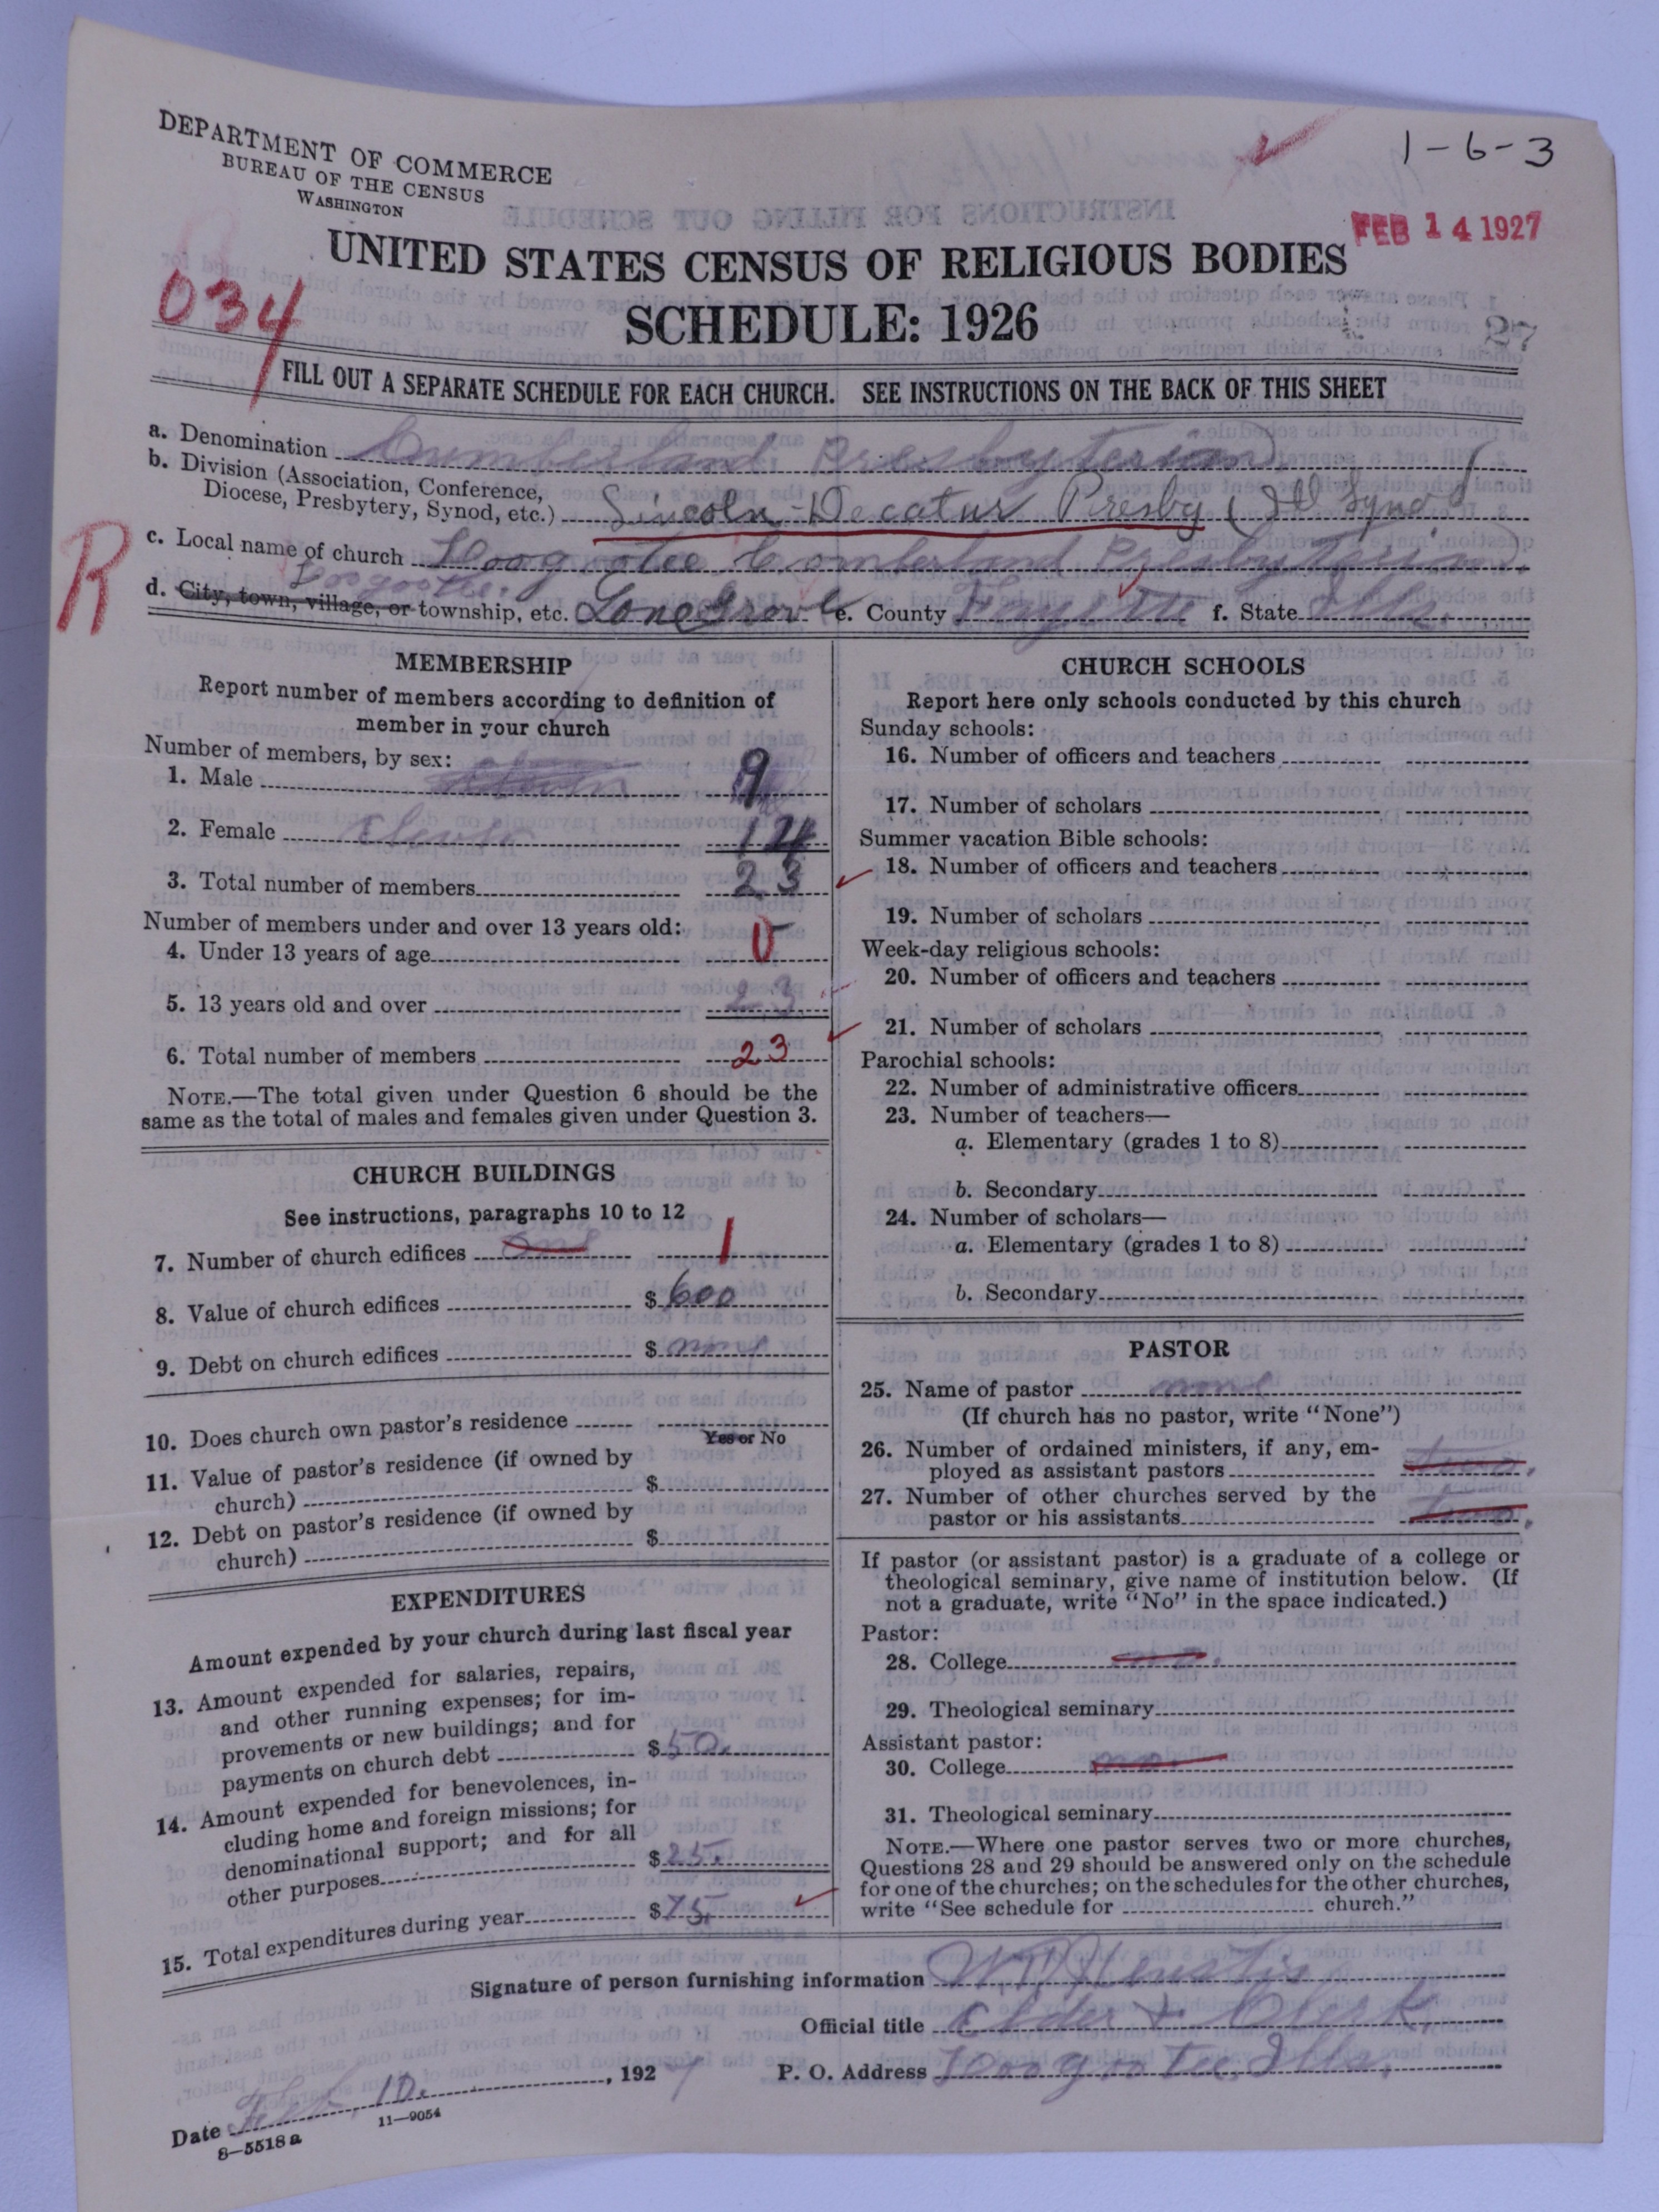 DEPARTMENT OF COMMERCE
BUREAU OF THE CENSUS
WASHINGTON
1-6-3
FEB 14 1927
UNITED STATES CENSUS OF RELIGIOUS BODIES
034
SCHEDULE: 1926
27
FILL OUT A SEPARATE SCHEDULE FOR EACH CHURCH. SEE INSTRUCTIONS ON THE BACK OF THIS SHEET
a. Denomination Cumberland Presbyterian
b. Division (Association, Conference,
Diocese, Presbytery, Synod, etc.) Lincoln-Decatur Presby (Ill Synod)
R
c. Local name of church Loogootee Cumberland Presbyterian.
Loogootee.
d. City, town, village, or township, etc. Lone Grove e. County Fayette f. State Ills.
MEMBERSHIP
Report number of members according to definition of
member in your church
Number of members, by sex:
1. Male 9
2. Female eleven 14
3. Total number of members 23
Number of members under and over 13 years old:
4. Under 13 years of age 0
5. 13 years old and over 23
6. Total number of members 23
NOTE.—The total given under Question 6 should be the
same as the total of males and females given under Question 3.
CHURCH BUILDINGS
See instructions, paragraphs 10 to 12
7. Number of church edifices one 1
8. Value of church edifices $ 600
9. Debt on church edifices $ none
10. Does church own pastor's residence
Yes or No
11. Value of pastor's residence (if owned by
church) $
12. Debt on pastor's residence (if owned by
church) $
EXPENDITURES
Amount expended by your church during last fiscal year
13. Amount expended for salaries, repairs,
and other running expenses; for im-
provements or new buildings; and for
payments on church debt $ 50.
14. Amount expended for benevolences, in-
cluding home and foreign missions; for
denominational support; and for all
other purposes $ 25.
15. Total expenditures during year $ 75.
CHURCH SCHOOLS
Report here only schools conducted by this church
Sunday schools:
16. Number of officers and teachers
17. Number of scholars
Summer vacation Bible schools:
18. Number of officers and teachers
19. Number of scholars
Week-day religious schools:
20. Number of officers and teachers
21. Number of scholars
Parochial schools:
22. Number of administrative officers
23. Number of teachers—
a. Elementary (grades 1 to 8)
b. Secondary
24. Number of scholars—
a. Elementary (grades 1 to 8)
b. Secondary
PASTOR
25. Name of pastor none
(If church has no pastor, write "None")
26. Number of ordained ministers, if any, em-
ployed as assistant pastors two.
27. Number of other churches served by the
pastor or his assistants two.
If pastor (or assistant pastor) is a graduate of a college or
theological seminary, give name of institution below. (If
not a graduate, write "No" in the space indicated.)
Pastor:
28. College no.
29. Theological seminary
Assistant pastor:
30. College no.
31. Theological seminary
NOTE.—Where one pastor serves two or more churches,
Questions 28 and 29 should be answered only on the schedule
for one of the churches; on the schedules for the other churches,
write "See schedule for church."
Signature of person furnishing information
Official title Elder + Clerk.
Date Feb. 10. , 1927 P. O. Address Loogootee, Ills.
8—5518a 11—9054